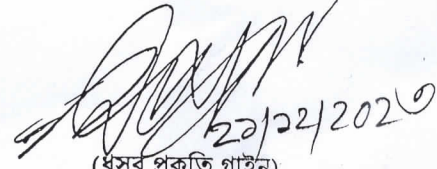 ২১/১২/২০২৩
(ধূসর প্রকৃতি গাইন)